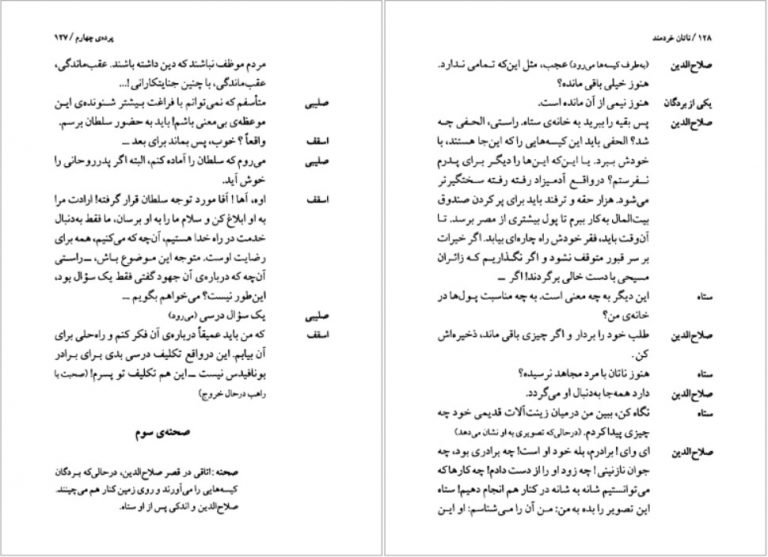 پرده‌ی چهارم / ۱۲۷
مردم موظف نباشند که دین داشته باشند. عقب‌ماندگی،
عقب‌ماندگی، با چنین جنایتکارانی !...
صلیبی متأسفم که نمی‌توانم با فراغت بیشتر شنونده‌ی این
موعظه‌ی بی‌معنی باشم! باید به حضور سلطان برسم.
اسقف واقعاً؟ خوب، پس بماند برای بعد ــ
صلیبی می‌روم که سلطان را آماده کنم، البته اگر پدرروحانی را
خوش آید.
اسقف اوه، آها ! آقا مورد توجه سلطان قرار گرفته! ارادت مرا
به او ابلاغ کن و سلام ما را به او برسان، ما فقط به‌دنبال
خدمت در راه خدا هستیم، آن‌چه که می‌کنیم، همه برای
رضایت اوست. متوجه این موضوع باش، ــ راستی
آن‌چه که درباره‌ی آن جهود گفتی فقط یک سؤال بود،
این‌طور نیست؟ می‌خواهم بگویم ــ
صلیبی یک سؤال درسی (می‌رود)
اسقف که من باید عمیقاً درباره‌ی آن فکر کنم و راه‌حلی برای
آن بیابم. این درواقع تکلیف درسی بدی برای برادر
بونافیدس نیست ــ این هم تکلیف تو پسرم! (صحبت با
راهب درحال خروج)
صحنه‌ی سوم
صحنه : اتاقی در قصر صلاح‌الدین، درحالی‌که بردگان
کیسه‌هایی را می‌آورند و روی زمین کنار هم می‌چینند.
صلاح‌الدین و اندکی پس از او ستاه.
۱۲۸ / ناتان خردمند
صلاح‌الدین (به‌طرف کیسه‌ها می‌رود) عجب، مثل این‌که تمامی ندارد.
هنوز خیلی باقی مانده؟
یکی از بردگان هنوز نیمی از آن مانده است.
صلاح‌الدین پس بقیه را ببرید به خانه‌ی ستاه. راستی، الحفی چه
شد؟ الحفی باید این کیسه‌هایی را که این‌جا هستند، با
خودش ببرد. یا این‌که این‌ها را دیگر برای پدرم
نفرستم؟ درواقع آدمیزاد رفته رفته سختگیرتر
می‌شود. هزار حقه و ترفند باید برای پر کردن صندوق
بیت‌المال به‌کار ببرم تا پول بیشتری از مصر برسد. تا
آن‌وقت باید، فقر خودش راه چاره‌ای بیابد. اگر خیرات
بر سر قبور متوقف نشود و اگر نگذاریم که زائران
مسیحی با دست خالی برگردند! اگر ــ
ستاه این دیگر به چه معنی است. به چه مناسبت پول‌ها در
خانه‌ی من؟
صلاح‌الدین طلب خود را بردار و اگر چیزی باقی ماند، ذخیره‌اش
کن.
ستاه هنوز ناتان با مرد مجاهد نرسیده؟
صلاح‌الدین دارد همه‌جا به‌دنبال او می‌گردد.
ستاه نگاه کن، ببین من درمیان زینت‌آلات قدیمی خود چه
چیزی پیدا کردم. (درحالی‌که تصویری به او نشان می‌دهد)
صلاح‌الدین ای وای ! برادرم، بله خود او است! چه برادری بود، چه
جوان نازنینی ! چه زود او را از دست دادم! چه کارها که
می‌توانستیم شانه به شانه در کنار هم انجام دهیم! ستاه
این تصویر را بده به من: من آن را می‌شناسم: او این